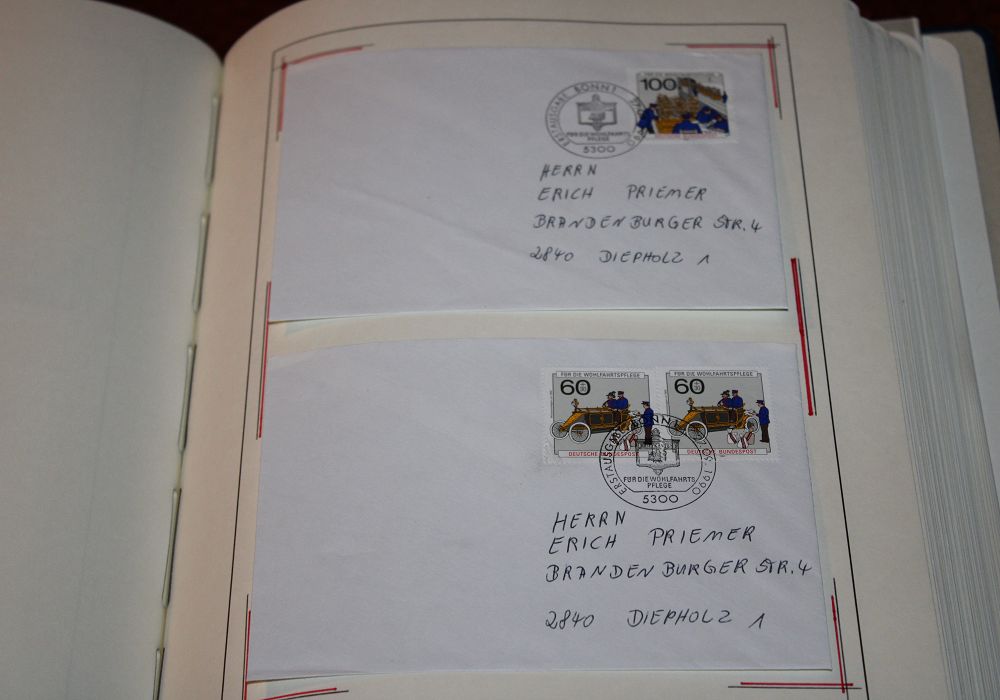 FÜR DIE WOHLFAHRTSPFLEGE
100
ERSTAUSGABE BONN 1
FÜR DIE WOHLFAHRTS
PFLEGE
5300
HERRN
ERICH PRIEMER
BRANDENBURGER STR. 4
2840 DIEPHOLZ 1
FÜR DIE WOHLFAHRTSPFLEGE
60
DEUTSCHE BUNDESPOST
FÜR DIE WOHLFAHRTSPFLEGE
60
DEUTSCHE BUNDESPOST
ERSTAUSGABE BONN 1 27.09.1990
FÜR DIE WOHLFAHRTS
PFLEGE
5300
HERRN
ERICH PRIEMER
BRANDENBURGER STR. 4
2840 DIEPHOLZ 1